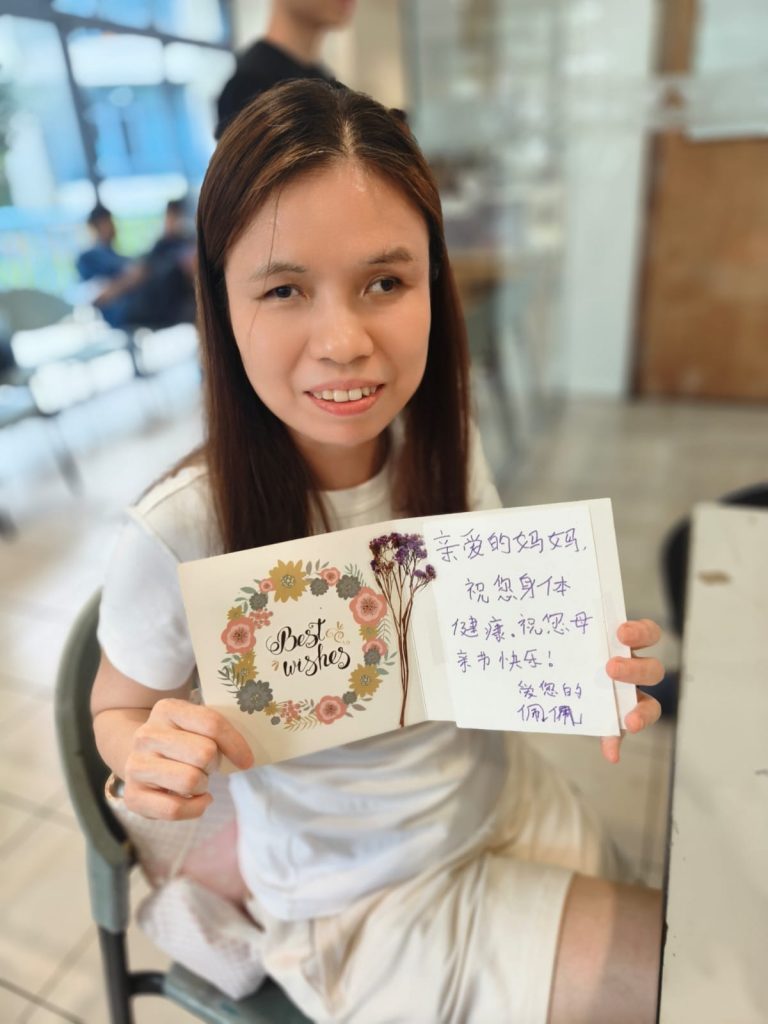 Best
wishes
亲爱的妈妈,
祝您身体
健康。祝您母
亲节快乐!
爱您的
佩佩